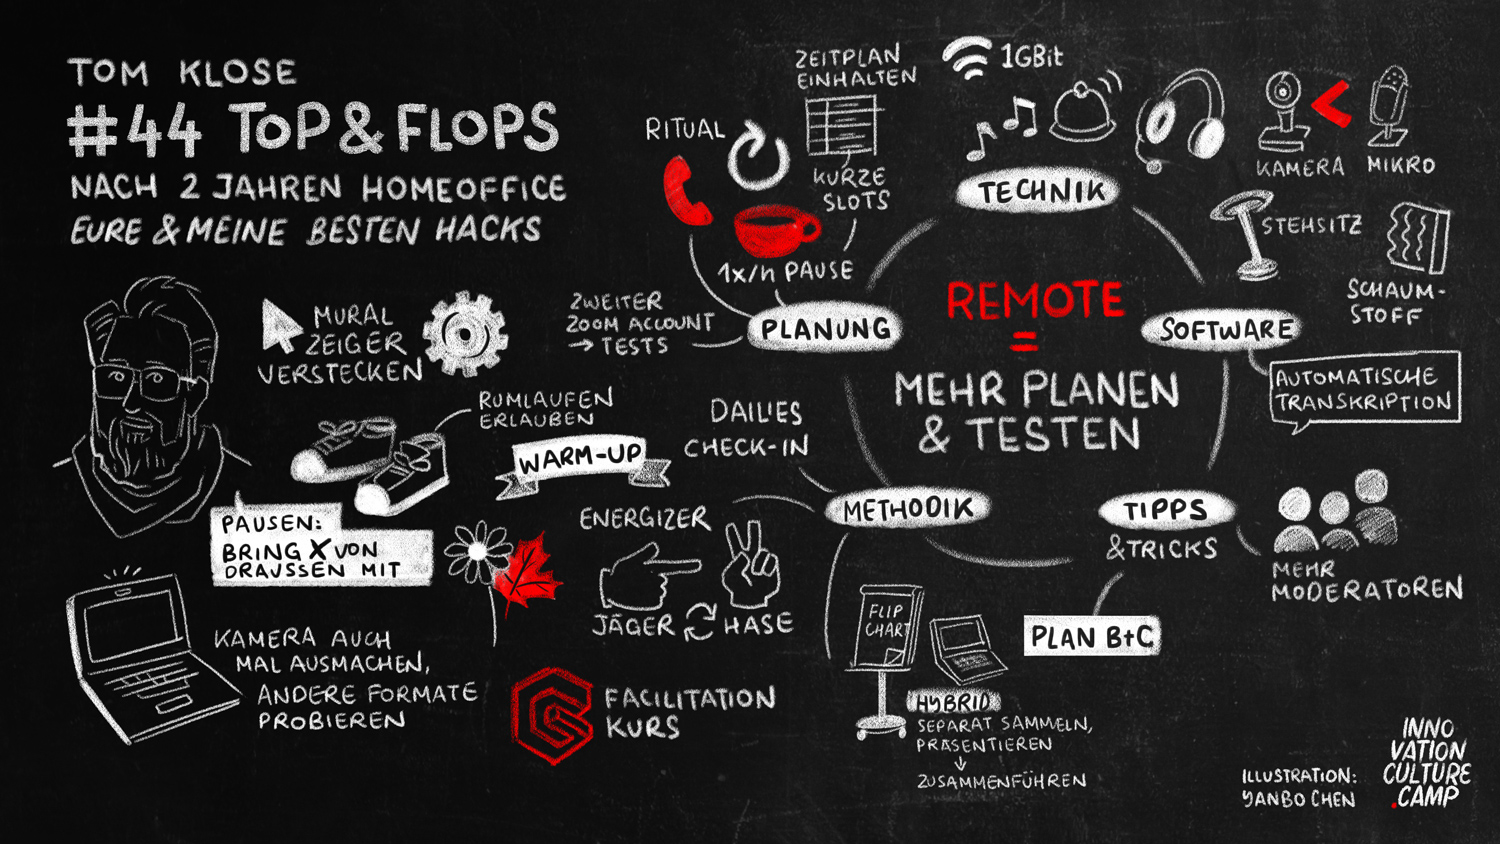 TOM KLOSE
#44 TOP & FLOPS
NACH 2 JAHREN HOMEOFFICE
EURE & MEINE BESTEN HACKS
MURAL
ZEIGER
VERSTECKEN
RUMLAUFEN
ERLAUBEN
WARM-UP
PAUSEN:
BRING X VON
DRAUSSEN MIT
KAMERA AUCH
MAL AUSMACHEN,
ANDERE FORMATE
PROBIEREN
ENERGIZER
JÄGER
HASE
FACILITATION
KURS
RITUAL
ZEITPLAN
EINHALTEN
KURZE
SLOTS
1x/h PAUSE
ZWEITER
ZOOM ACCOUNT
→ TESTS
PLANUNG
1GBit
TECHNIK
KAMERA
<
MIKRO
STEHSITZ
SCHAUM-
STOFF
REMOTE
=
MEHR PLANEN
& TESTEN
SOFTWARE
AUTOMATISCHE
TRANSKRIPTION
DAILIES
CHECK-IN
METHODIK
FLIP
CHART
HYBRID
SEPARAT SAMMELN,
PRÄSENTIEREN
↓
ZUSAMMENFÜHREN
TIPPS
& TRICKS
MEHR
MODERATOREN
PLAN B+C
ILLUSTRATION:
YANBO CHEN
INNO
VATION
CULTURE
.CAMP